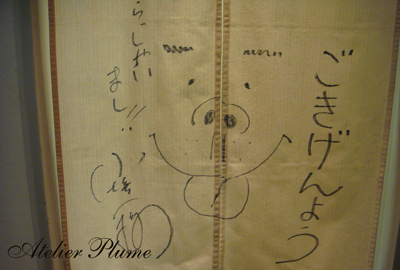 ごきげんよう
らっしゃい
まし!!
Atelier Plume